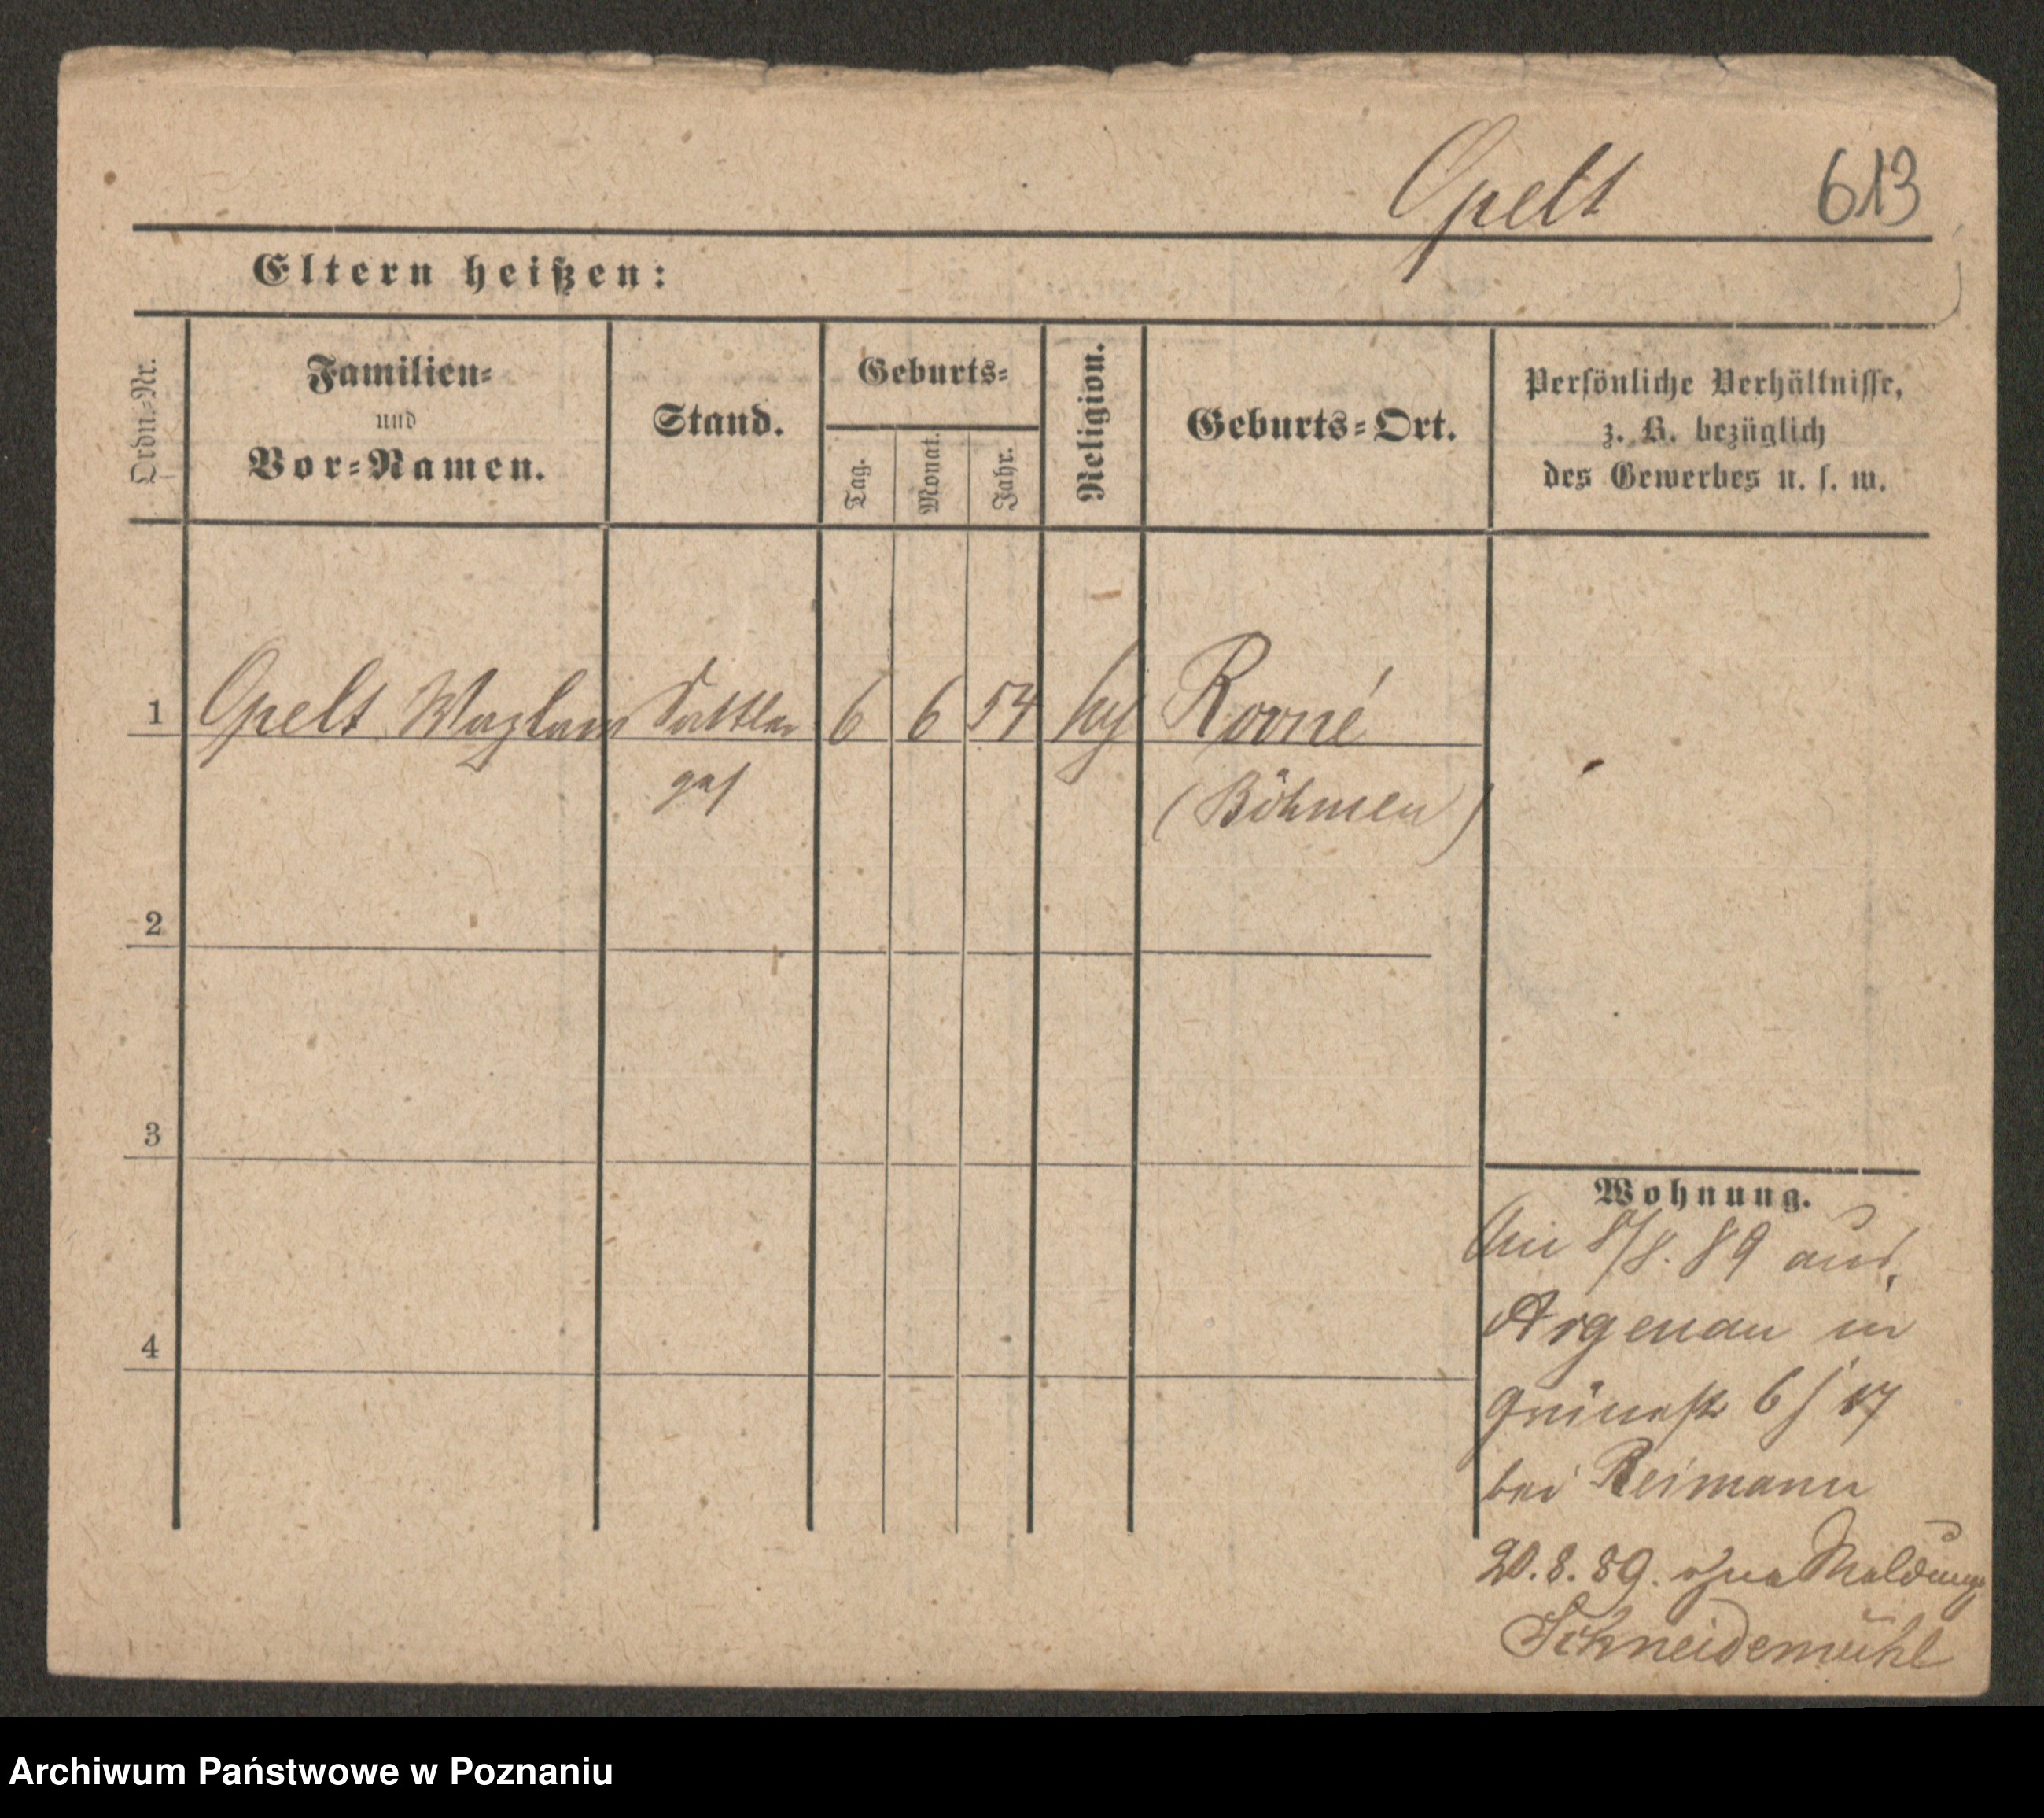 Opelt 613
Eltern heißen:
Ordn.-Nr.
Familien-
und
Vor-Namen.
Stand.
Geburts-
Tag.
Monat.
Jahr.
Religion.
Geburts-Ort.
Persönliche Verhältnisse,
z. B. bezüglich
des Gewerbes u. s. w.
1 Opelt Wazlaw Sattler 6 6 54 Rovné
(Böhmen)
2
3
4
Wohnung.
8/8. 89 aus
Argenau in
Grünestr 6
bei Reimann
20.8.89. ohne Meldung
Schneidemühl
Archiwum Państwowe w Poznaniu